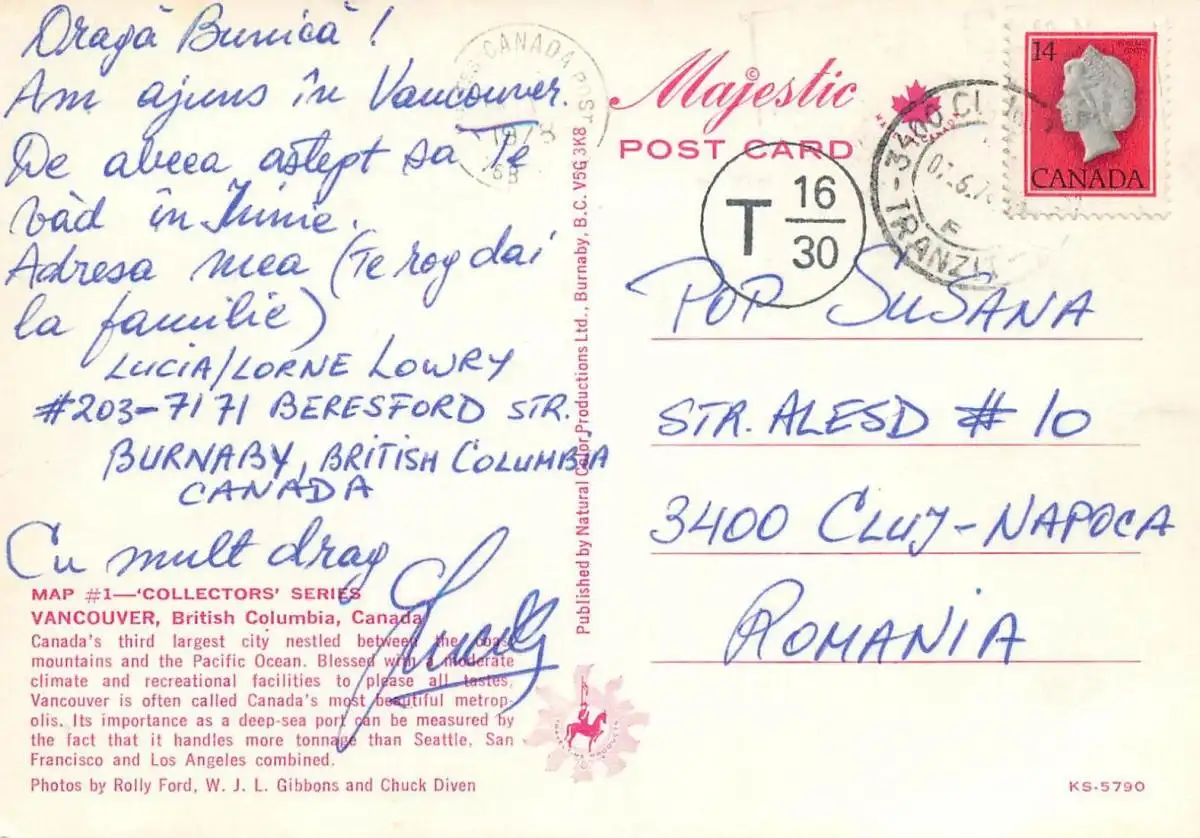 Dragă Bunică!
Am ajuns în Vancouver.
De abeea aștept să Te
văd în Iunie.
Adresa mea (Te rog dai
la familie)
LUCIA/LORNE LOWRY
#203-7171 BERESFORD STR.
BURNABY, BRITISH COLUMBIA
CANADA
Cu mult drag
MAP #1—'COLLECTORS' SERIES
VANCOUVER, British Columbia, Canada
Canada's third largest city nestled between the coast
mountains and the Pacific Ocean. Blessed with a moderate
climate and recreational facilities to please all tastes,
Vancouver is often called Canada's most beautiful metrop-
olis. Its importance as a deep-sea port can be measured by
the fact that it handles more tonnage than Seattle, San
Francisco and Los Angeles combined.
Photos by Rolly Ford, W. J. L. Gibbons and Chuck Diven
Published by Natural Color Productions Ltd., Burnaby, B.C. V5G 3K8
CANADA POST
1978
Majestic ©
POST CARD
T 16/30
3400 CL
TRANZIT
14
CANADA
POP SUSANA
STR. ALESD # 10
3400 CLUJ-NAPOCA
ROMANIA
KS-5790